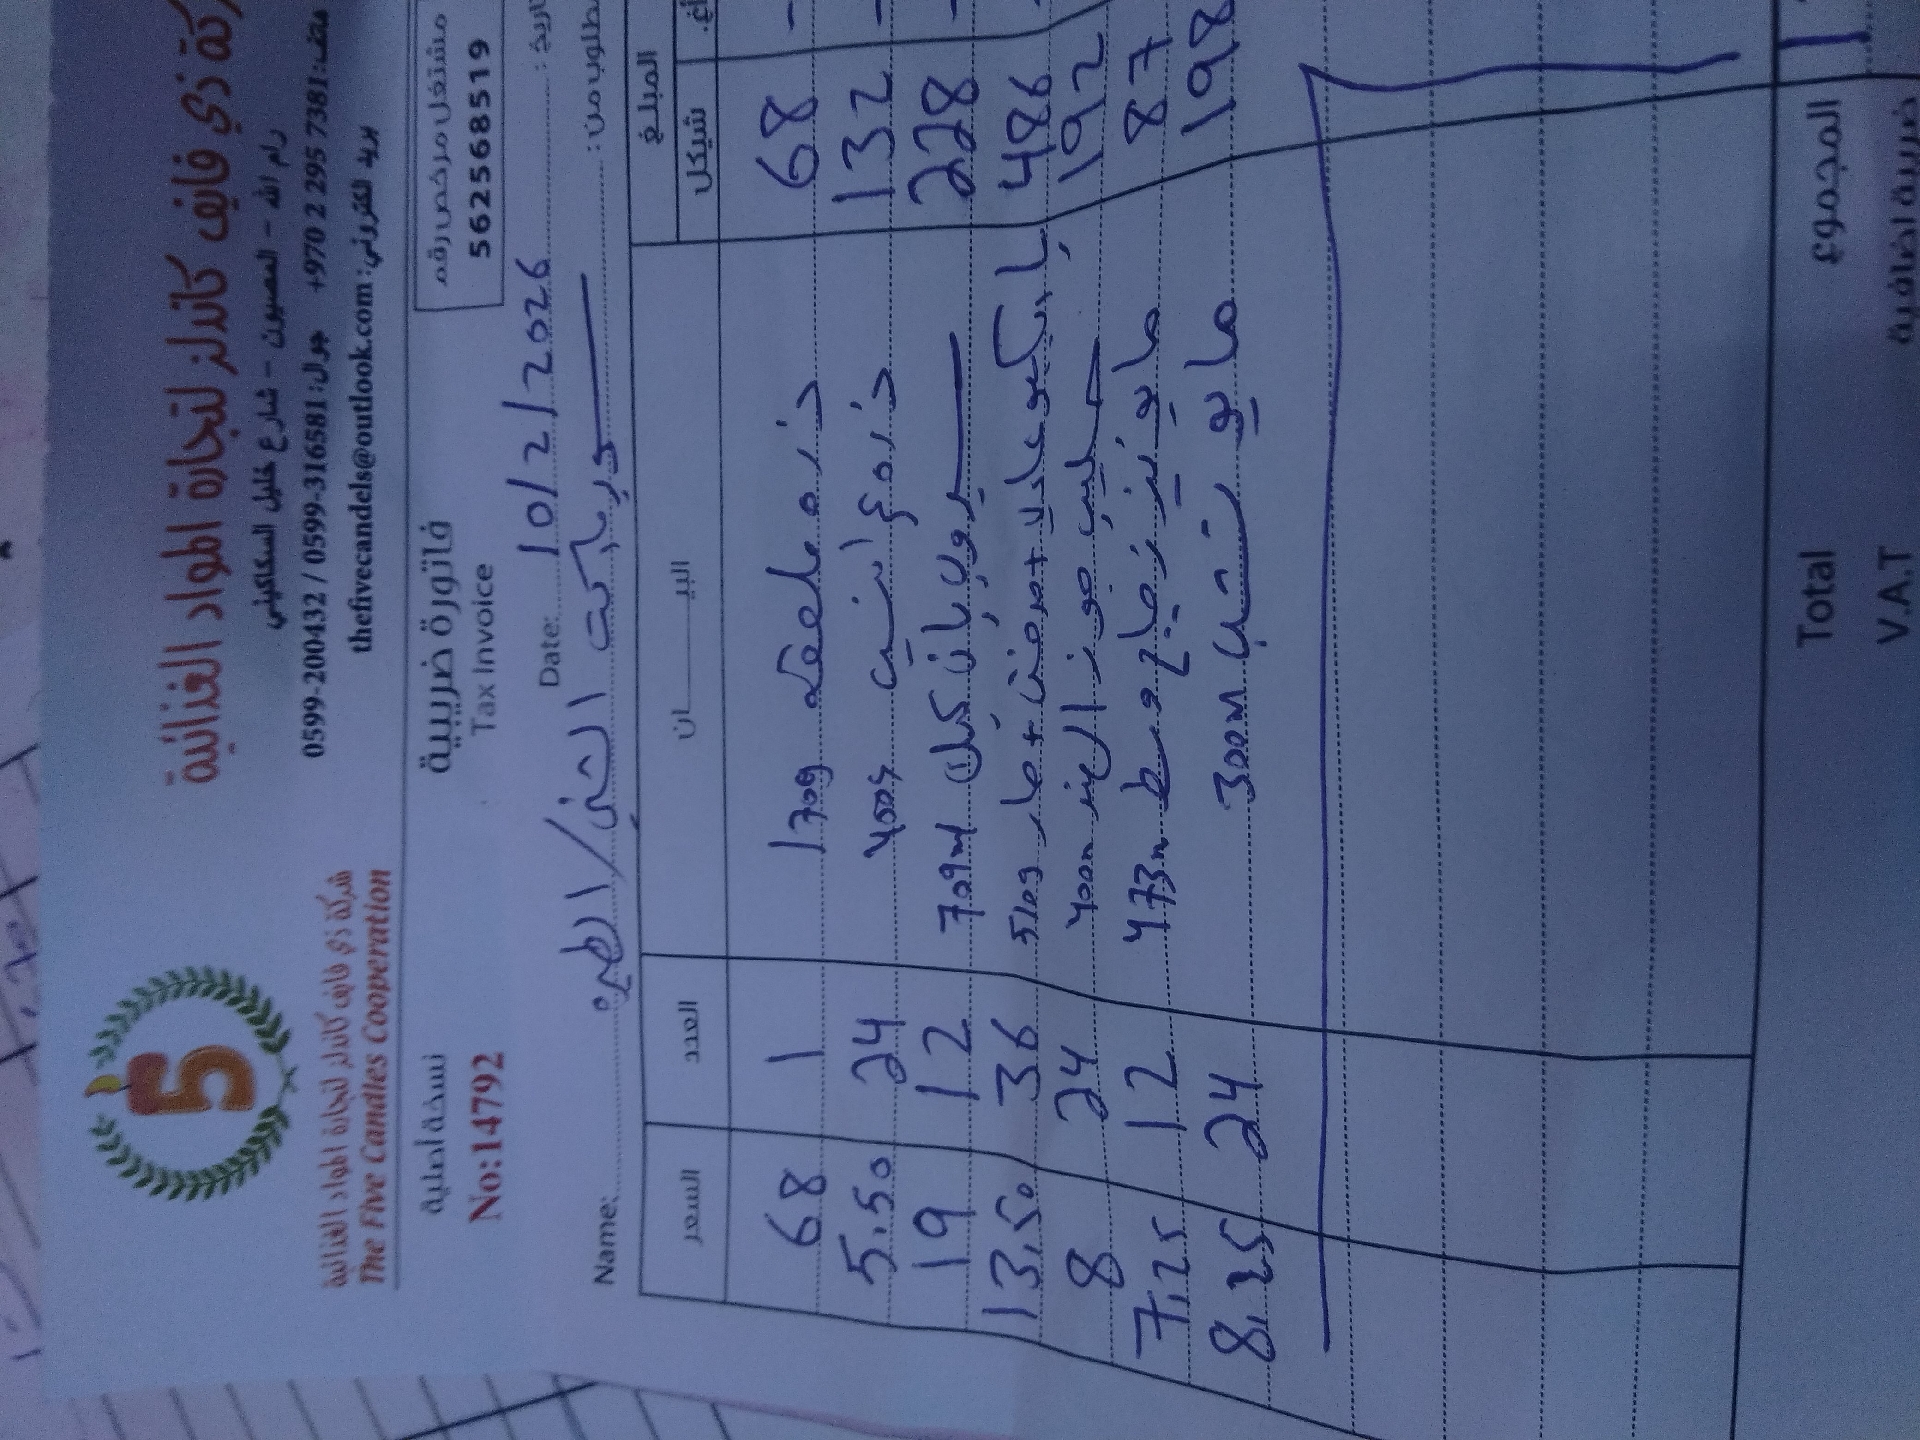 شركة ذي فايف كاندلز لتجارة المواد الغذائية
رام الله - المصيون - شارع خليل السكاكيني
هاتف: +970 2 295 7381 جوال: 0599-200432 / 0599-316581
بريد الكتروني: thefivecandels@outlook.com
5
شركة ذي فايف كاندلز لتجارة المواد الغذائية
The Five Candles Cooperation
مشتغل مرخص رقم
562568519
فاتورة ضريبية
Tax Invoice
نسخة اصلية
No:14792
Date: 10/2/2026
Name:
مطلوب من: / الطيرة
السعر العدد البيـــــــان المبلغ
شيكل
68 1 170g ذره 68 -
5.50 24 400g ذره 132 -
19 12 709ml سيروب بان كيك 228 -
13.50 36 510g + + 486
8 24 400m حليب جوز الهند 192
7.25 12 473m 87
8.25 24 300m 198
Total المجموع
V.A.T ضريبة اضافية